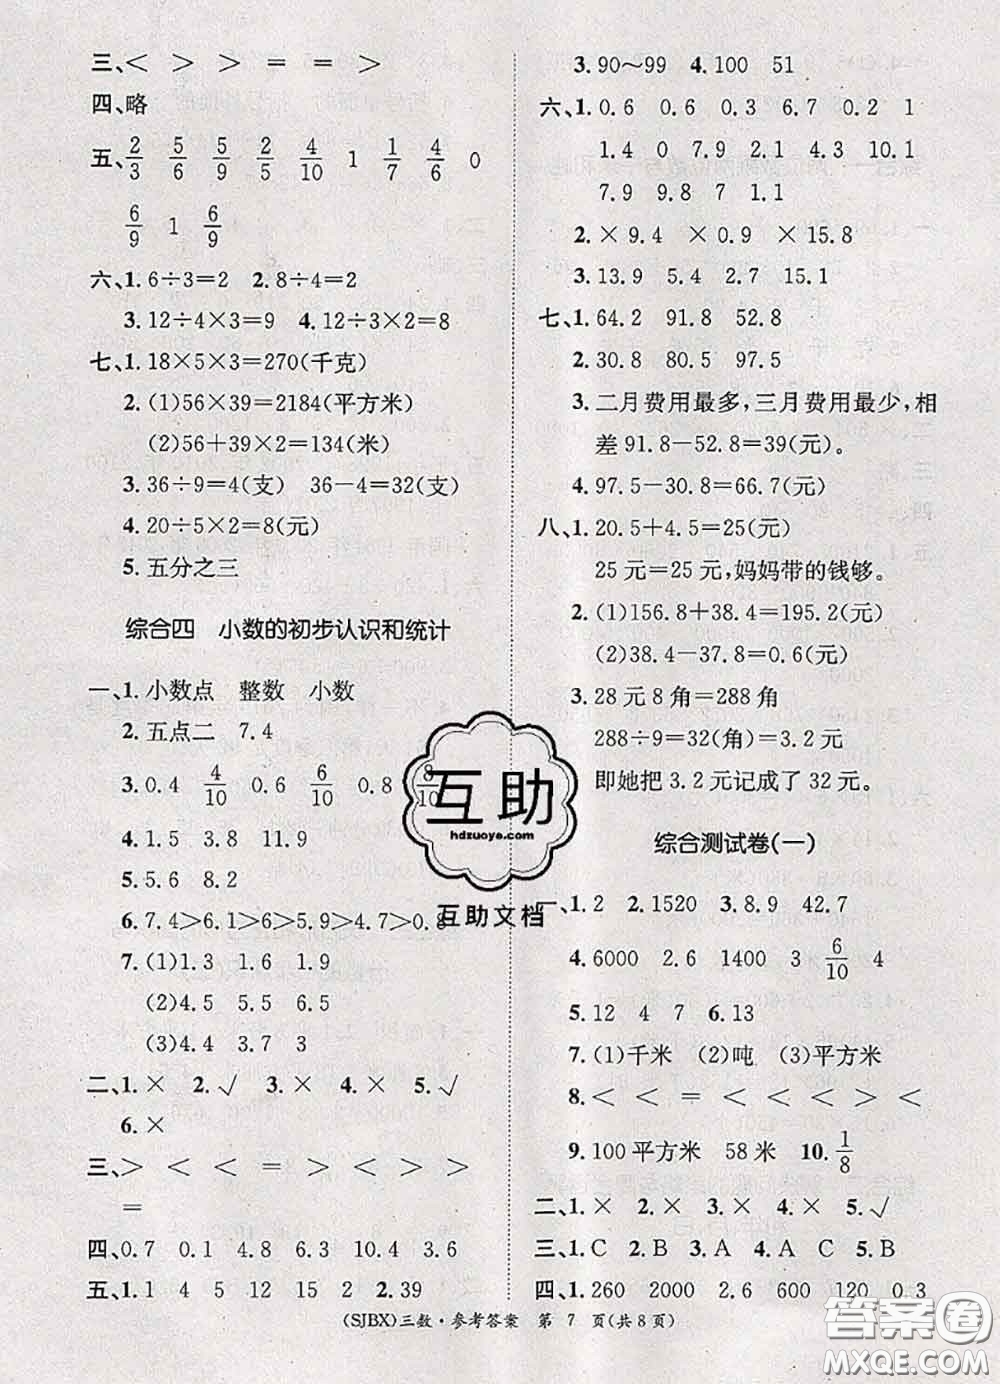 三、＜ ＞ ＞ ＝ ＝ ＞
四、略
五、2/3 5/6 5/9 2/5 4/10 1 1/7 4/6 0
6/9 1 6/9
六、1. 6÷3＝2 2. 8÷4＝2
3. 12÷4×3＝9 4. 12÷3×2＝8
七、1. 18×5×3＝270(千克)
2. (1)56×39＝2184(平方米)
(2)56＋39×2＝134(米)
3. 36÷9＝4(支) 36－4＝32(支)
4. 20÷5×2＝8(元)
5. 五分之三
综合四 小数的初步认识和统计
一、1. 小数点 整数 小数
2. 五点二 7.4
3. 0.4 4/10 0.6 6/10 0.8 8/10
4. 1.5 3.8 11.9
5. 5.6 8.2
6. 7.4＞6.1＞6＞5.9＞5＞4.7＞0.8
7. (1)1.3 1.6 1.9
(2)4.5 5.5 6.5
(3)4.4 3.7 3
二、1. × 2. √ 3. × 4. × 5. √
6. ×
三、＞ ＜ ＜ ＝ ＞ ＜ ＞ ＞
＝
四、0.7 0.1 4.8 6.3 10.4 3.6
五、1. 1 4 5 12 15 2 2. 39
3. 90～99 4. 100 51
六、1. 0.6 0.6 0.3 6.7 0.2 1
1.4 0 7.9 2.1 4.3 10.1
7.9 9.8 7 1.1
2. × 9.4 × 0.9 × 15.8
3. 13.9 5.4 2.7 15.1
七、1. 64.2 91.8 52.8
2. 30.8 80.5 97.5
3. 二月费用最多，三月费用最少，相
差91.8－52.8＝39(元)。
4. 97.5－30.8＝66.7(元)
八、1. 20.5＋4.5＝25(元)
25元＝25元，妈妈带的钱够。
2. (1)156.8＋38.4＝195.2(元)
(2)38.4－37.8＝0.6(元)
3. 28元8角＝288角
288÷9＝32(角)＝3.2元
即她把3.2元记成了32元。
综合测试卷(一)
一、1. 2 2. 1520 3. 8.9 42.7
4. 6000 2.6 1400 3 6/10 4
5. 12 4 7 6. 13
7. (1)千米 (2)吨 (3)平方米
8. ＜ ＜ ＝ ＜ ＜ ＜ ＞ ＜
9. 100平方米 58米 10. 1/8
二、1. × 2. × 3. × 4. × 5. √
三、1. C 2. B 3. A 4. A C 5. B
四、1. 260 2000 2.6 600 120 0.3
(SJBX)三数·参考答案 第 7 页(共8页)
互助
hdzuoye.com
互助文档
答案圈
MXQE.COM